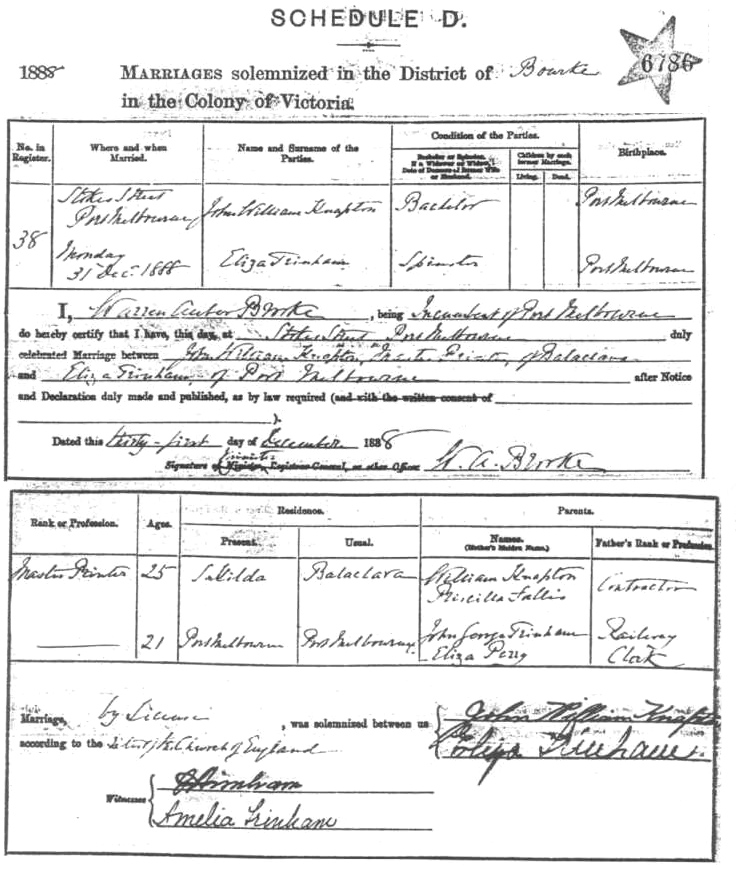 SCHEDULE D.
6786
1888 MARRIAGES solemnized in the District of Bourke
in the Colony of Victoria.
No. in Register.
Where and when Married.
Name and Surname of the Parties.
Condition of the Parties.
Bachelor or Spinster. If a Widower or Widow, Date of Decease of former Wife or Husband.
Children by each former Marriage.
Living. Dead.
Birthplace.
38
Stokes Street
Port Melbourne
Monday
31 Dec. 1888
John William Knapton
Eliza Trinham
Bachelor
Spinster
Port Melbourne
Port Melbourne
I, Warren Auber Brooke, being Incumbent of Port Melbourne
do hereby certify that I have, this day, at Stokes Street Port Melbourne duly
celebrated Marriage between John William Knapton, Master Printer, of Balaclava
and Eliza Trinham, of Port Melbourne after Notice
and Declaration duly made and published, as by law required (and with the written consent of
).
Dated this thirty-first day of December 1888
Minister
Signature of Minister, Registrar-General, or other Officer W. A. Brooke
Rank or Profession.
Ages.
Residence.
Present.
Usual.
Parents.
Names.
(Mother's Maiden Name.)
Father's Rank or Profession.
Master Printer 25 St Kilda Balaclava William Knapton Contractor
Priscilla Fallis
21 Port Melbourne Port Melbourne John George Trinham Railway
Eliza Perry Clerk
Marriage, by License, was solemnized between us John William Knapton
according to the Rites of the Church of England Eliza Trinham
Witnesses
Trinham
Amelia Trinham